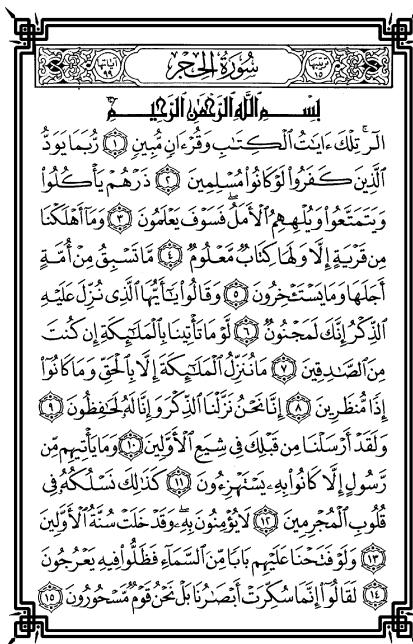 ترتيبها ١٥ سُورَةُ الحِجْرِ آياتها ٩٩
بِسْمِ اللَّهِ الرَّحْمَٰنِ الرَّحِيمِ
الٓرۚ تِلْكَ ءَايَٰتُ ٱلْكِتَٰبِ وَقُرْءَانٍ مُّبِينٍ ١ رُّبَمَا يَوَدُّ
ٱلَّذِينَ كَفَرُوا۟ لَوْ كَانُوا۟ مُسْلِمِينَ ٢ ذَرْهُمْ يَأْكُلُوا۟
وَيَتَمَتَّعُوا۟ وَيُلْهِهِمُ ٱلْأَمَلُۖ فَسَوْفَ يَعْلَمُونَ ٣ وَمَآ أَهْلَكْنَا
مِن قَرْيَةٍ إِلَّا وَلَهَا كِتَابٌ مَّعْلُومٌ ٤ مَّا تَسْبِقُ مِنْ أُمَّةٍ
أَجَلَهَا وَمَا يَسْتَـْٔخِرُونَ ٥ وَقَالُوا۟ يَٰٓأَيُّهَا ٱلَّذِى نُزِّلَ عَلَيْهِ
ٱلذِّكْرُ إِنَّكَ لَمَجْنُونٌ ٦ لَّوْ مَا تَأْتِينَا بِٱلْمَلَٰٓئِكَةِ إِن كُنتَ
مِنَ ٱلصَّٰدِقِينَ ٧ مَا نُنَزِّلُ ٱلْمَلَٰٓئِكَةَ إِلَّا بِٱلْحَقِّ وَمَا كَانُوٓا۟
إِذًا مُّنظَرِينَ ٨ إِنَّا نَحْنُ نَزَّلْنَا ٱلذِّكْرَ وَإِنَّا لَهُۥ لَحَٰفِظُونَ ٩
وَلَقَدْ أَرْسَلْنَا مِن قَبْلِكَ فِى شِيَعِ ٱلْأَوَّلِينَ ١٠ وَمَا يَأْتِيهِم مِّن
رَّسُولٍ إِلَّا كَانُوا۟ بِهِۦ يَسْتَهْزِءُونَ ١١ كَذَٰلِكَ نَسْلُكُهُۥ فِى
قُلُوبِ ٱلْمُجْرِمِينَ ١٢ لَا يُؤْمِنُونَ بِهِۦۖ وَقَدْ خَلَتْ سُنَّةُ ٱلْأَوَّلِينَ
١٣ وَلَوْ فَتَحْنَا عَلَيْهِم بَابًا مِّنَ ٱلسَّمَآءِ فَظَلُّوا۟ فِيهِ يَعْرُجُونَ
١٤ لَقَالُوٓا۟ إِنَّمَا سُكِّرَتْ أَبْصَٰرُنَا بَلْ نَحْنُ قَوْمٌ مَّسْحُورُونَ ١٥